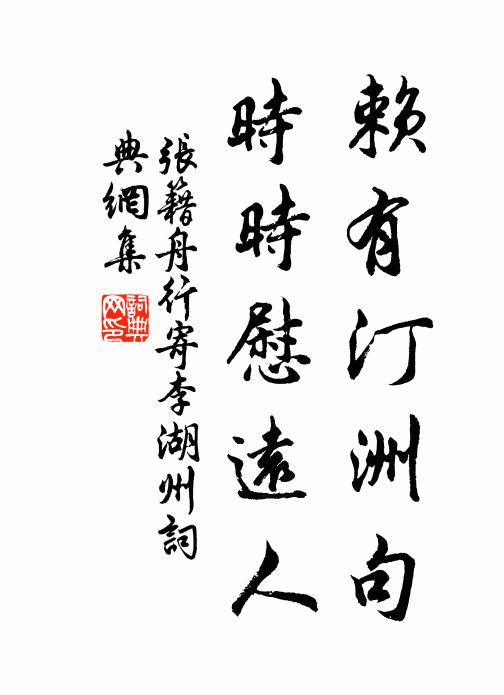 賴有汀洲句
時時慰遠人
張籍舟行寄李湖州詞
典網集
詞典网印